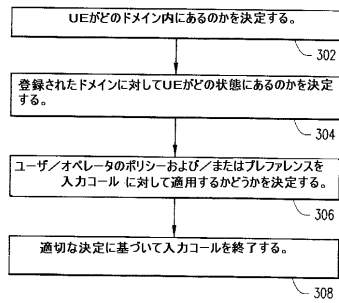 UEがどのドメイン内にあるのかを決定する。
302
登録されたドメインに対してUEがどの状態にあるのかを決定
する。
304
ユーザ／オペレータのポリシーおよび／またはプレファレンスを
入力コール に対して適用するかどうかを決定する。
306
適切な決定に基づいて入力コールを終了する。
308